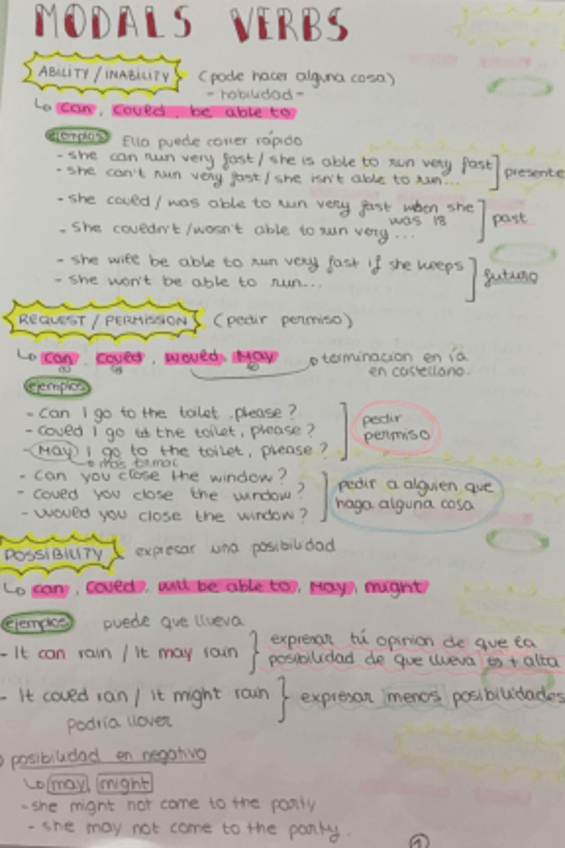 MODALS VERBS
ABILITY / INABILITY (pode hacer alguna cosa)
- habilidad -
↳ can, could, be able to
ejemplos Ella puede correr rápido
- she can run very fast / she is able to run very fast
- she can't run very fast / she isn't able to run...
presente
- she could / was able to run very fast when she was 18
- she couldn't / wasn't able to run very ...
past
- she will be able to run very fast if she keeps
- she won't be able to run...
futuro
REQUEST / PERMISSION (pedir permiso)
↳ can, could, would, May → terminacion en ía
en castellano.
ejemplos
- can I go to the toilet, please?
- could I go to the toilet, please?
- May I go to the toilet, please?
más formal
pedir
permiso
- can you close the window?
- could you close the window?
- would you close the window?
pedir a alguien que
haga alguna cosa
POSSIBILITY expresar una posibilidad
↳ can, could, will be able to, May, might
ejemplos puede que llueva
- It can rain / It may rain
expresar tú opinion de que la
posibilidad de que llueva es + alta
- It could ran / it might rain
expresar menos posibilidades
podría llover
posibilidad en negativo
↳ may, might
- she might not come to the party
- she may not come to the party.
①